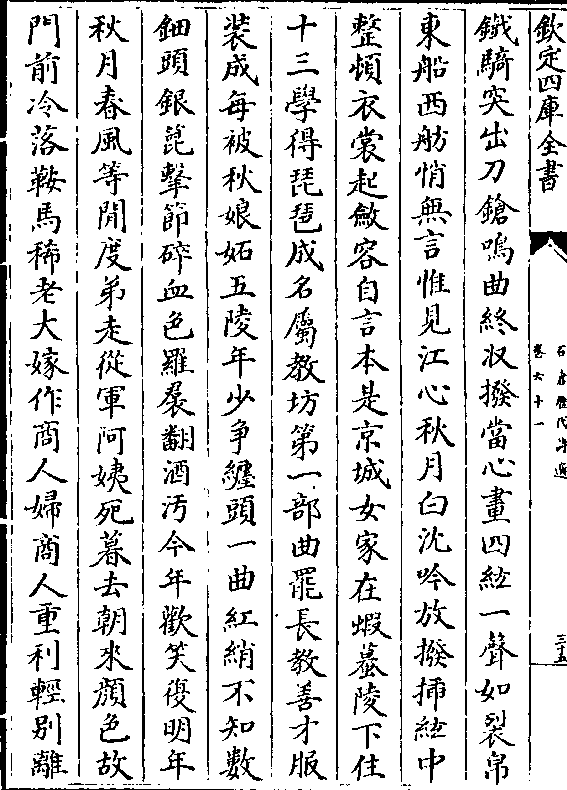 欽定四庫全書
石倉歷代詩選
卷六十一
三十五
鐵騎突出刀鎗鳴曲終収撥當心畫四絃一聲如裂帛
東船西舫悄無言惟見江心秋月白沈吟放撥揷絃中
整頓衣裳起斂容自言本是京城女家在蝦蟇陵下住
十三學得琵琶成名屬教坊第一部曲罷長教善才服
裝成每被秋娘妬五陵年少争纏頭一曲紅綃不知數
鈿頭銀箆擊節碎血色羅裠翻酒汚今年歡笑復明年
秋月春風等閒度弟走從軍阿姨死暮去朝來顔色故
門前冷落鞍馬稀老大嫁作商人婦商人重利輕别離